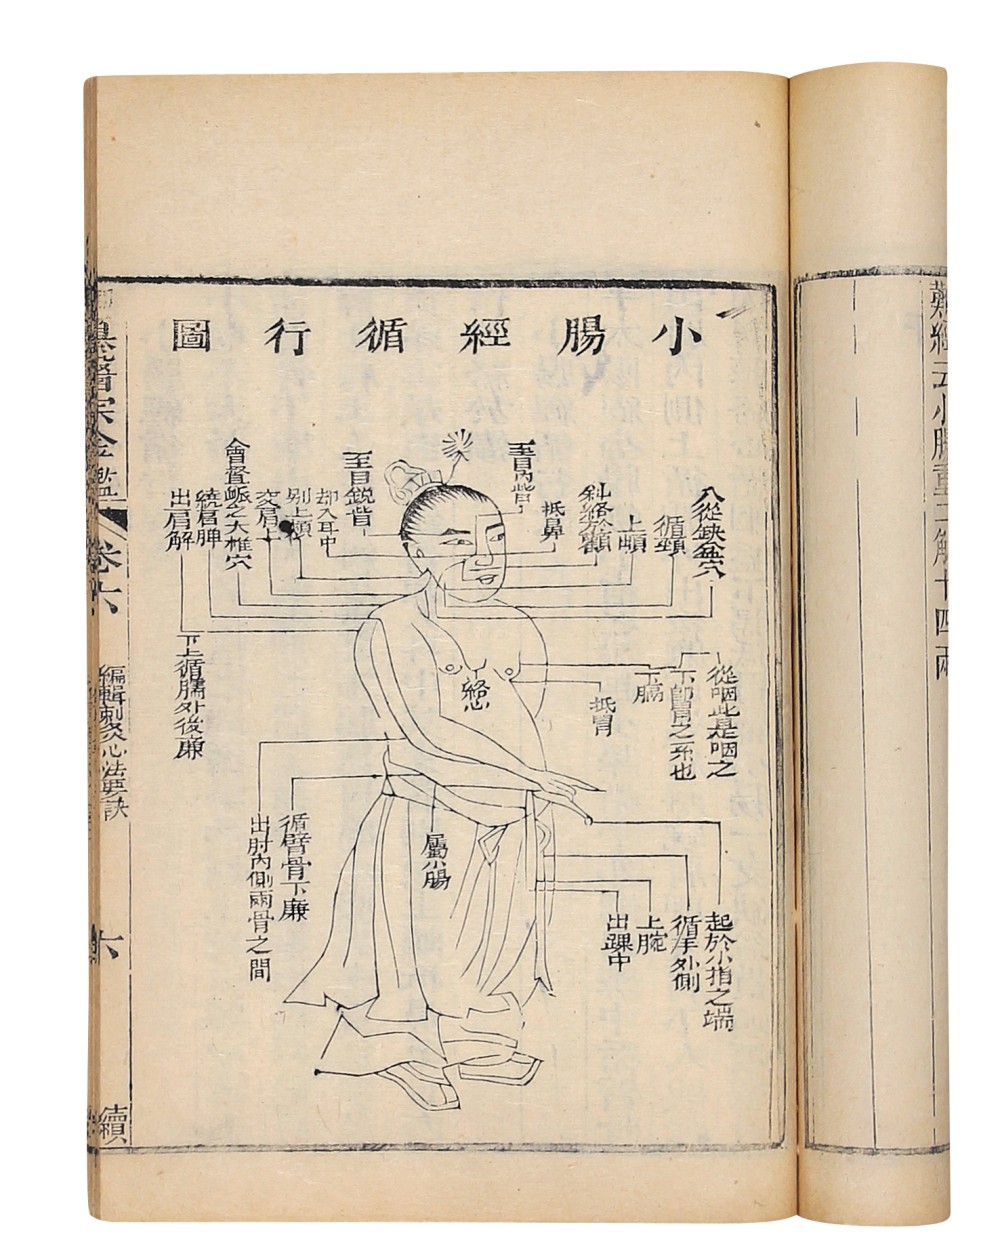 難經云小腸重二觔十四兩
小腸經循行圖
入從缺盆穴
循頸
上䪼
斜絡於顴
抵鼻
至目內眥
至目銳眥
却入耳中
別上頰
交肩上
會督脈之大椎穴
繞肩胛
出肩解
從咽此是咽之
下即胃之系也
下膈
抵胃
絡心
下上循臑外後廉
起於小指之端
循手外側
上腕
出踝中
屬小腸
循臂骨下廉
出肘內側兩骨之間
醫宗金鑑
卷六
編輯刺灸心法要訣
六
續